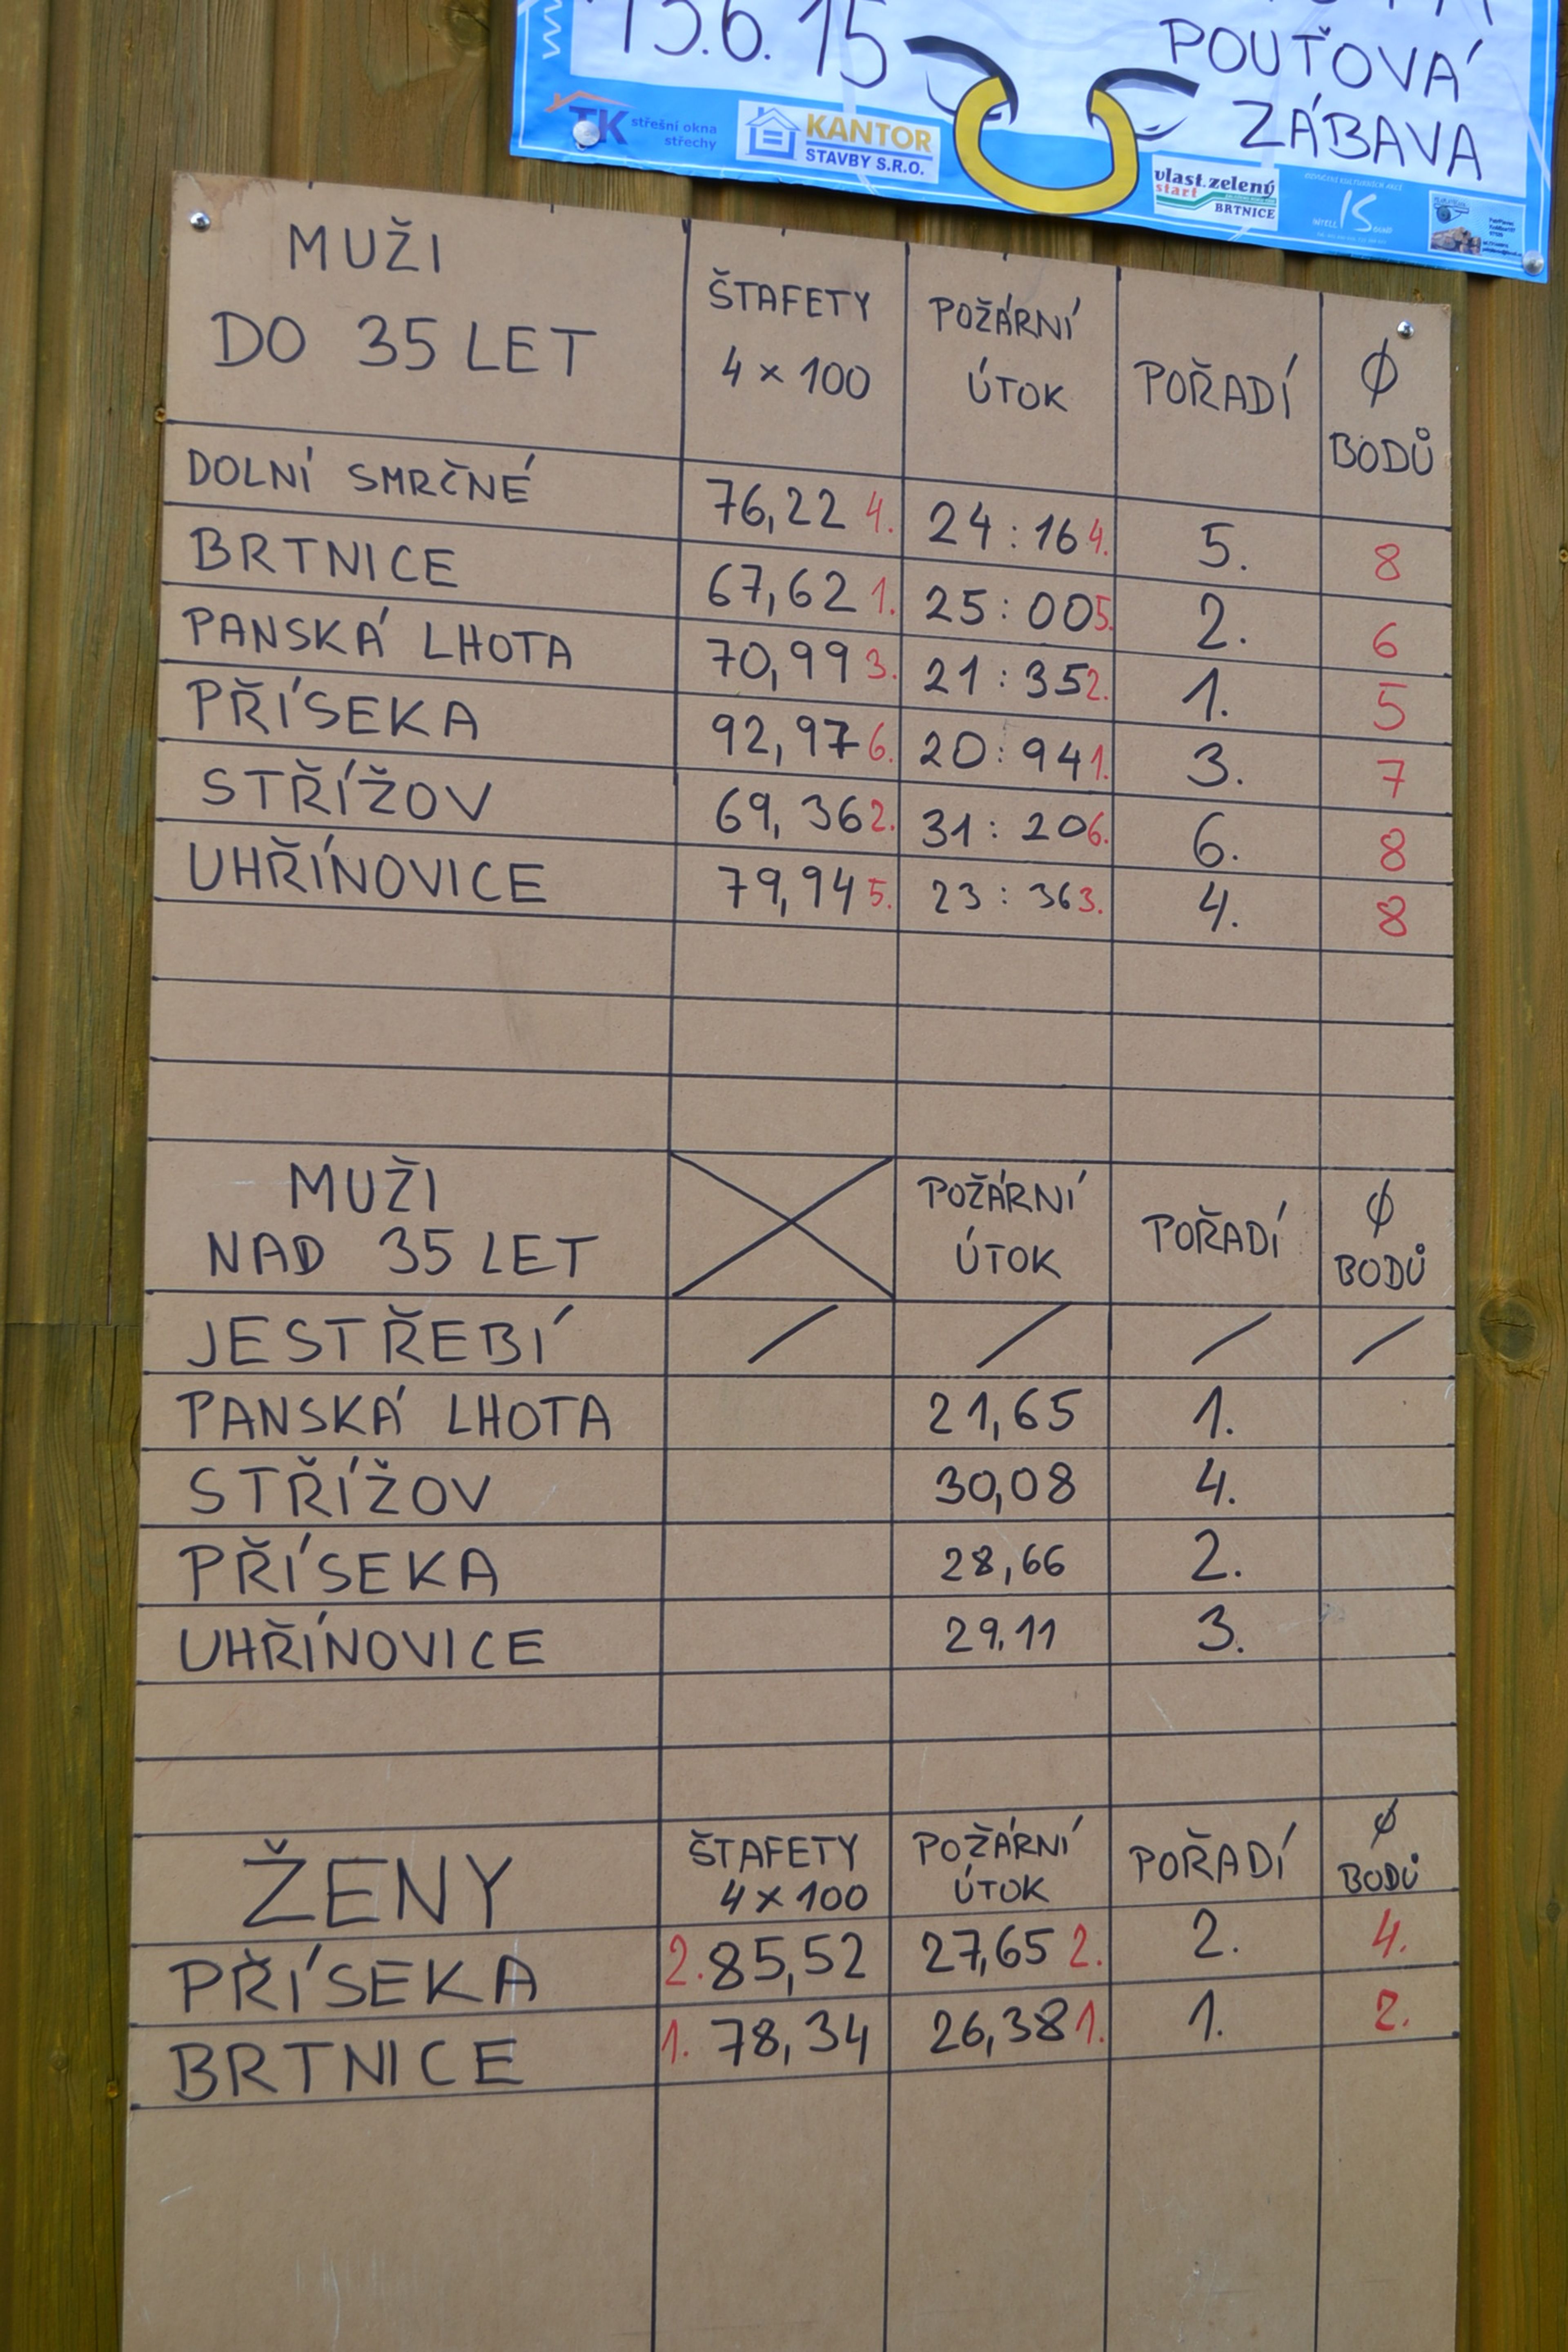 15.6.15
POUŤOVÁ
ZÁBAVA
TK střešní okna
střechy
KANTOR
STAVBY S.R.O.
vlast.zelený
start
BRTNICE
IS
MUŽI
DO 35 LET
ŠTAFETY
4 x 100
POŽÁRNÍ
ÚTOK
POŘADÍ
Ø
BODŮ
DOLNÍ SMRČNÉ 76,22 4. 24:16 4. 5. 8
BRTNICE 67,62 1. 25:00 5. 2. 6
PANSKÁ LHOTA 70,99 3. 21:35 2. 1. 5
PŘÍSEKA 92,97 6. 20:94 1. 3. 7
STŘÍŽOV 69,36 2. 31:20 6. 6. 8
UHŘÍNOVICE 79,94 5. 23:36 3. 4. 8
MUŽI
NAD 35 LET
POŽÁRNÍ
ÚTOK
POŘADÍ
Ø
BODŮ
JESTŘEBÍ / / / /
PANSKÁ LHOTA 21,65 1.
STŘÍŽOV 30,08 4.
PŘÍSEKA 28,66 2.
UHŘÍNOVICE 29,11 3.
ŽENY
ŠTAFETY
4 x 100
POŽÁRNÍ
ÚTOK
POŘADÍ
Ø
BODŮ
PŘÍSEKA 2. 85,52 27,65 2. 2. 4.
BRTNICE 1. 78,34 26,38 1. 1. 2.